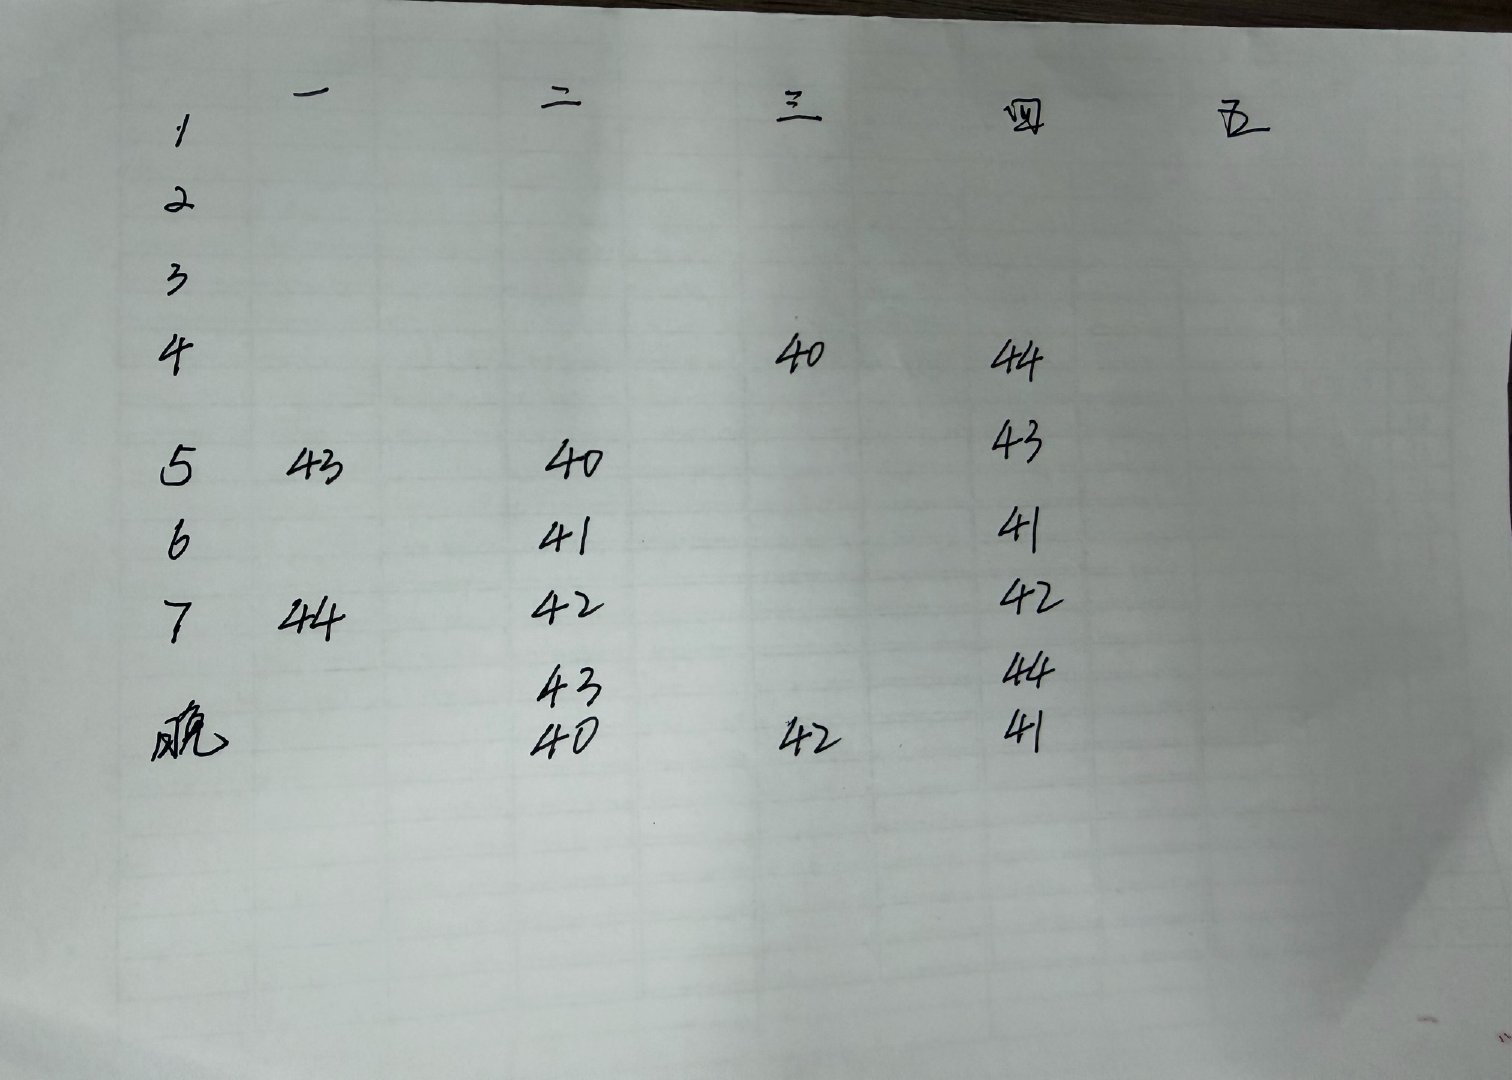 一 二 三 四 五
1
2
3
4 40 44
5 43 40 43
6 41 41
7 44 42 42
43 44
晚 40 42 41